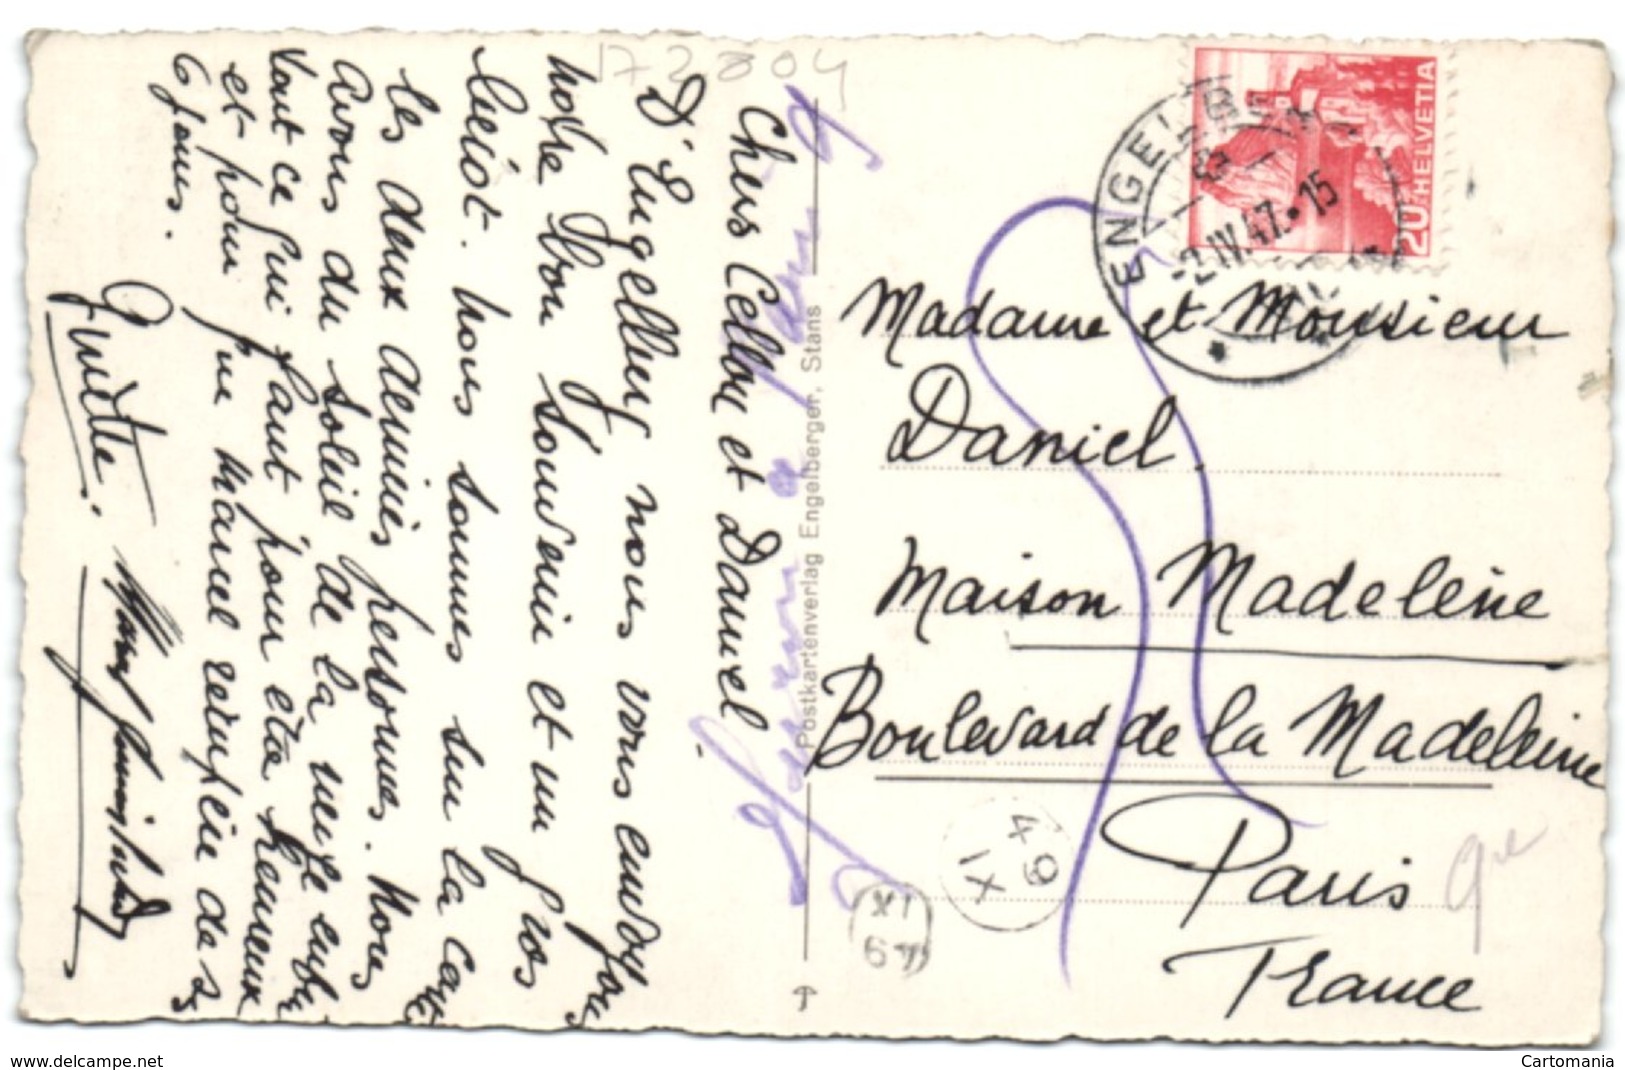 172804
Chers Cellou et Daniel.
D'Engelberg nous vous envoyons
notre bon souvenir et un gros
bécot. nous sommes sur la carte
les deux dernières personnes. Nous
Avons du soleil de la neige enfin
tout ce qui faut pour être heureux
et pour Marcel rempli de ses
6 jours.
Postkartenverlag Engelberger, Stans
HELVETIA
20
ENGELBERG
-2.IV.47.-15
Madame et Monsieur
Daniel.
Maison Madeleine
Boulevard de la Madeleine
Paris
France
9me
49
IX
XI
49
www.delcampe.net
Cartomania